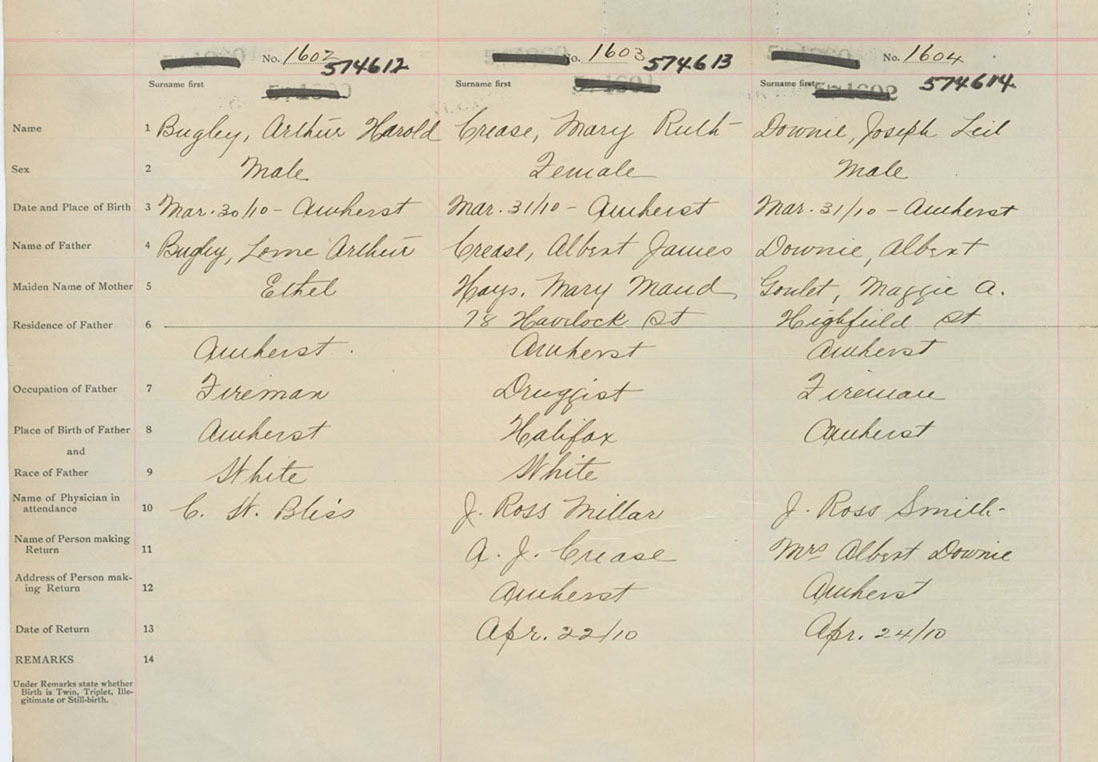 No. 1602 No. 1603 No. 1604
574612 574613 574614
Surname first Surname first Surname first
Name 1 Bugley, Arthur Harold Crease, Mary Ruth Downie, Joseph Leil
Sex 2 Male Female Male
Date and Place of Birth 3 Mar. 30/10 - Amherst Mar. 31/10 - Amherst Mar. 31/10 - Amherst
Name of Father 4 Bugley, Lorne Arthur Crease, Albert James Downie, Albert
Maiden Name of Mother 5 Ethel Hays, Mary Maud Goulet, Maggie A.
Residence of Father 6 78 Havelock St Highfield St
Amherst. Amherst Amherst
Occupation of Father 7 Fireman Druggist Fireman
Place of Birth of Father 8 Amherst Halifax Amherst
and
Race of Father 9 White White
Name of Physician in
attendance 10 C. W. Bliss J. Ross Millar J. Ross Smith
Name of Person making
Return 11 A. J. Crease Mrs Albert Downie
Address of Person mak-
ing Return 12 Amherst Amherst
Date of Return 13 Apr. 22/10 Apr. 24/10
REMARKS 14
Under Remarks state whether
Birth is Twin, Triplet, Ille-
gitimate or Still-birth.